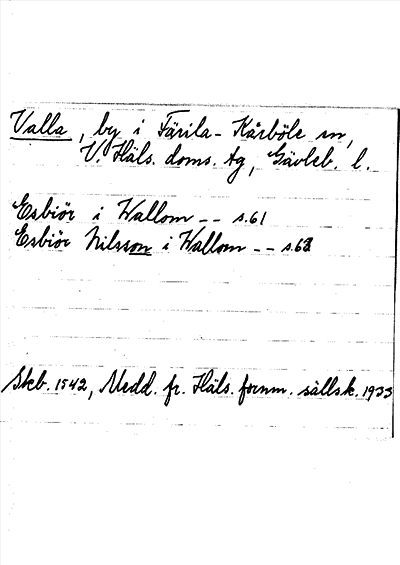 Valla, by i Färila-Kårböle sn,
V. Häls. doms. tg, Gävleb. l.
Esbiör i Wallom -- s.61
Esbiör Nilsson i Wallom -- s.62
Skb. 1542, Medd. fr. Häls. fornm. sällsk. 1933